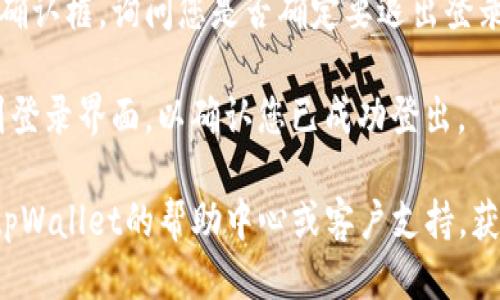 确认框，询问您是否确定要退出登录
区块链
到登录界面，以确认您已成功登出。
pWallet的帮助中心或客户支持，获